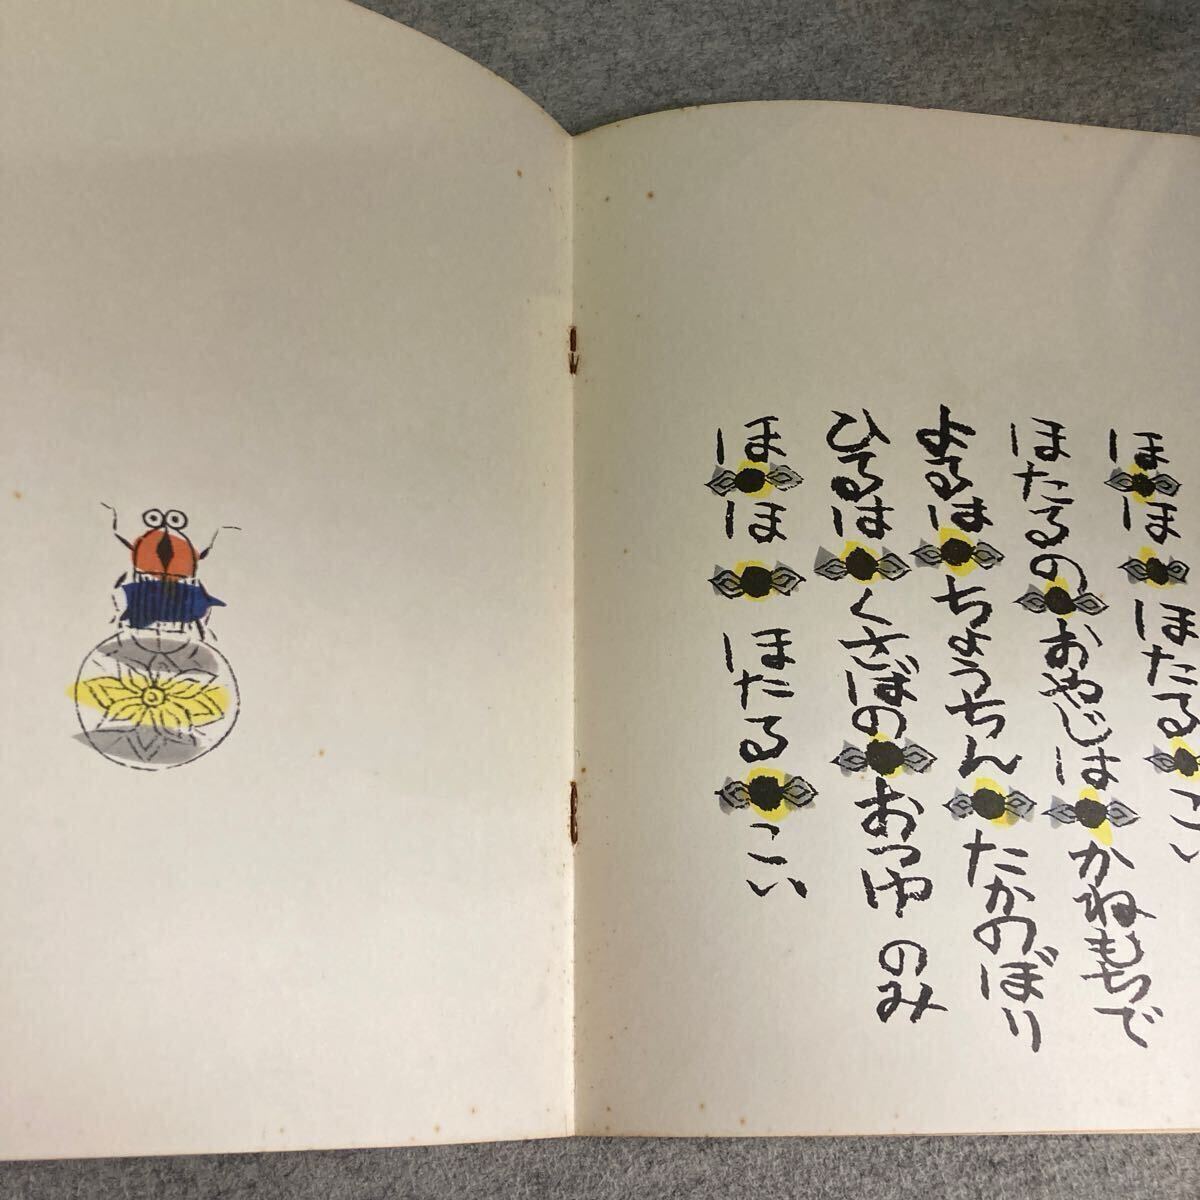 ほほほたるこい
ほたるのおやじはかねもちで
よるはちょうちんたかのぼり
ひるはくさばのおつゆのみ
ほほほたるこい